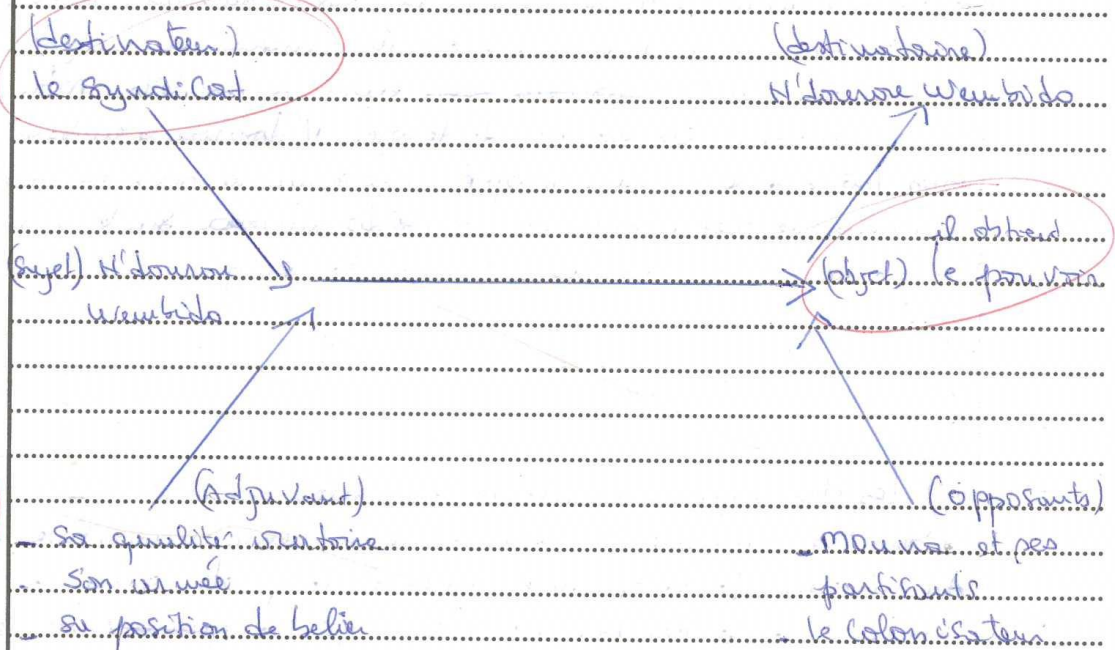 (destinateur)
le syndicat
(destinataire)
N'dourore Wembido
(sujet) N'dourou
Wembido
il obtient
(objet) le pouvoir
(Adjuvant)
- sa qualité oratoire
- son armée
- sa position de belier
(opposants)
- Mouna et ses
partisants
- le colonisateur